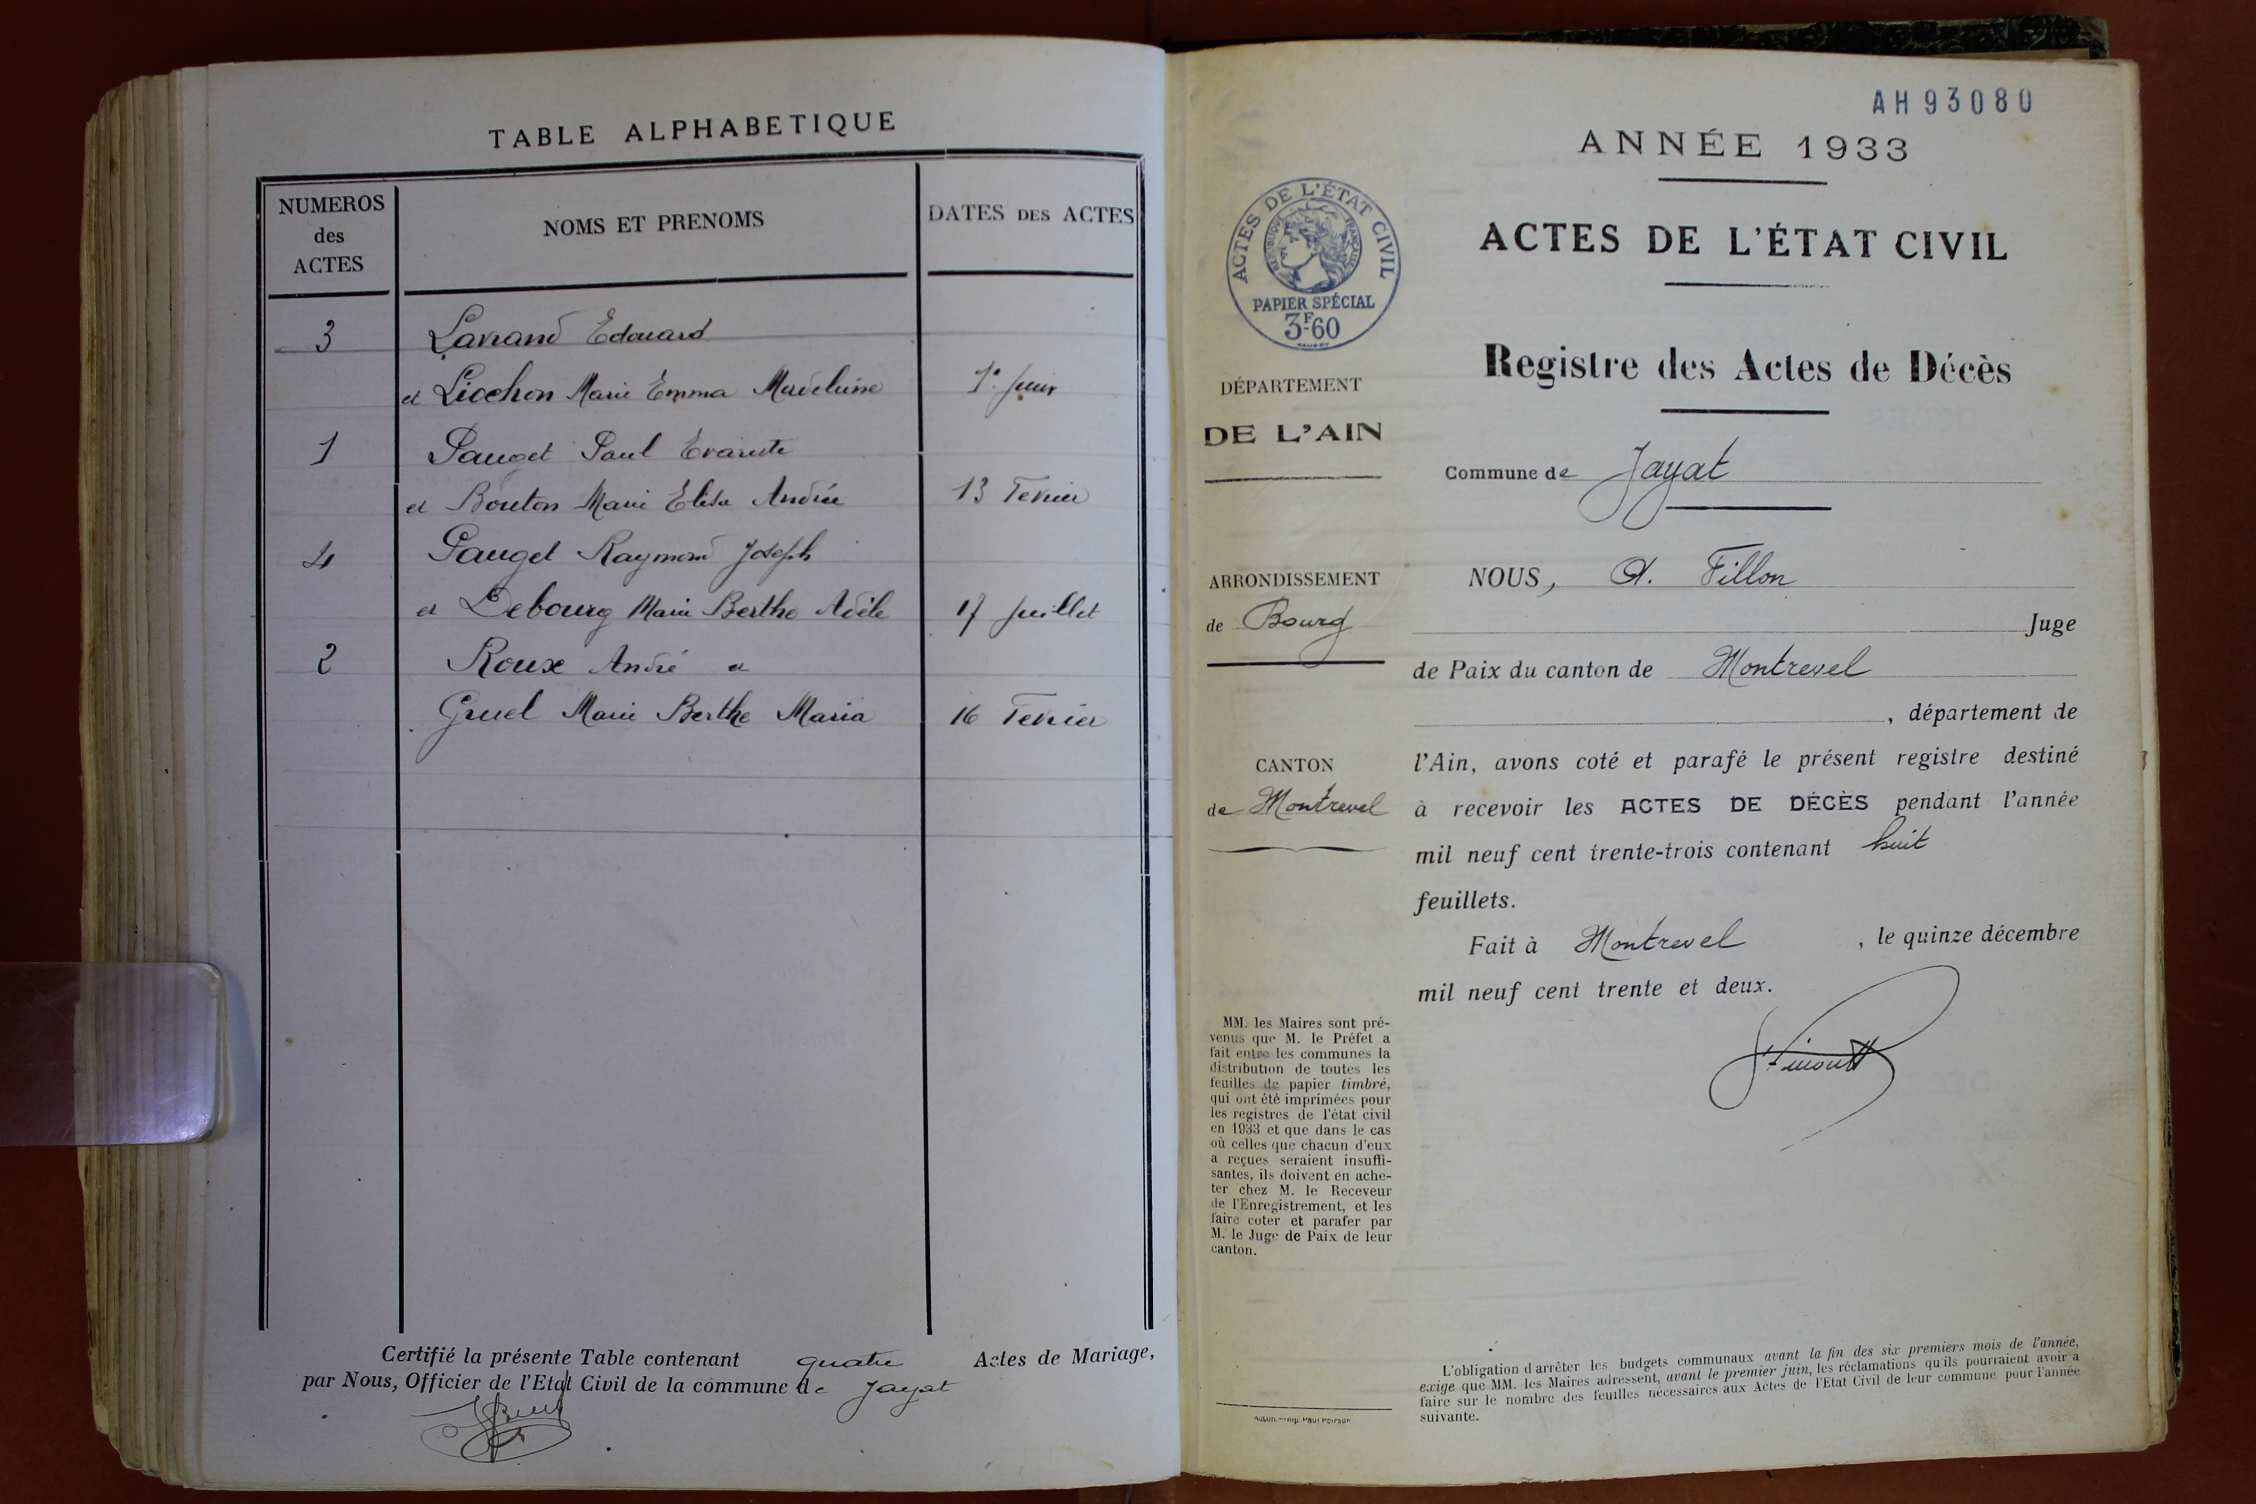 TABLE ALPHABETIQUE
NUMEROS des ACTES
NOMS ET PRENOMS
DATES DES ACTES
3 Edouard
et Licchon Marie Emma Madeleine 1er Juin
1 Pauget Paul Evariste
et Bouton Marie Elisa Andrée 13 Fevrier
4 Pauget Raymond Joseph
et Debourg Marie Berthe Adèle 17 Juillet
2 Roux André et
Gruel Marie Berthe Maria 16 Fevrier
Certifié la présente Table contenant quatre Actes de Mariage,
par Nous, Officier de l'Etat Civil de la commune de Jayat
AH 93080
ANNÉE 1933
ACTES DE L'ÉTAT CIVIL
RÉPUBLIQUE FRANÇAISE
PAPIER SPÉCIAL
3F.60
ACTES DE L'ÉTAT CIVIL
Registre des Actes de Décès
DÉPARTEMENT
DE L'AIN
Commune de Jayat
ARRONDISSEMENT
de Bourg
CANTON
de Montrevel
NOUS, A. Fillon
Juge
de Paix du canton de Montrevel
, département de
l'Ain, avons coté et parafé le présent registre destiné
à recevoir les ACTES DE DÉCÈS pendant l'année
mil neuf cent trente-trois contenant huit
feuillets.
Fait à Montrevel , le quinze décembre
mil neuf cent trente et deux.
MM. les Maires sont pré-
venus que M. le Préfet a
fait entre les communes la
distribution de toutes les
feuilles de papier timbré,
qui ont été imprimées pour
les registres de l'état civil
en 1933 et que dans le cas
où celles que chacun d'eux
a reçues seraient insuffi-
santes, ils doivent en ache-
ter chez M. le Receveur
de l'Enregistrement, et les
faire coter et parafer par
M. le Juge de Paix de leur
canton.
L'obligation d'arrêter les budgets communaux avant la fin des six premiers mois de l'année,
exige que MM. les Maires adressent, avant le premier juin, les réclamations qu'ils pourraient avoir à
faire sur le nombre des feuilles nécessaires aux Actes de l'Etat Civil de leur commune pour l'année
suivante.